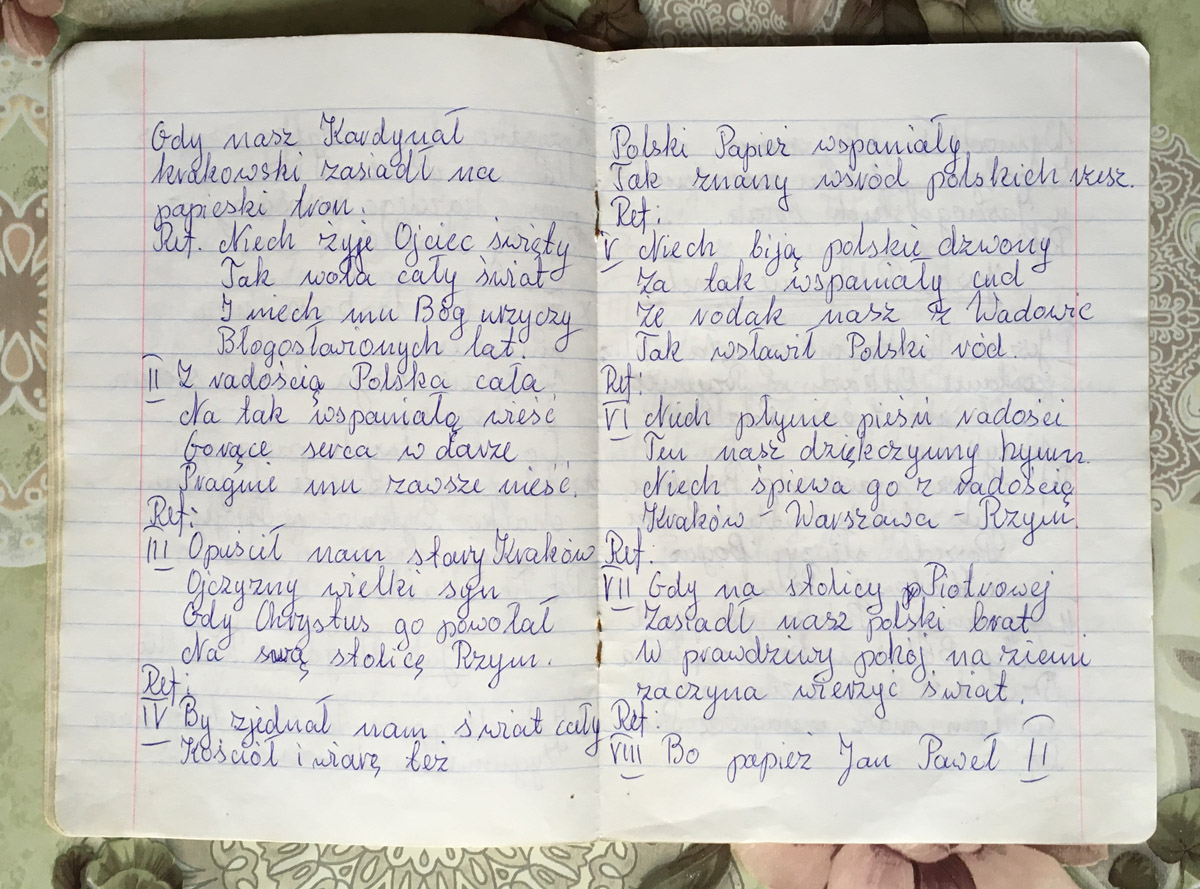 Gdy nasz Kardynał
krakowski zasiadł na
papieski tron.
Ref. Niech żyje Ojciec święty
Tak woła cały świat
I niech mu Bóg urzyczy
Błogosławionych lat.
II Z radością Polska cała
Na tak wspaniałą wieść
Gorące serca w darze
Pragnie mu zawsze nieść.
Ref:
III Opuścił nam stary Kraków
Ojczyzny wielki syn
Gdy Chrystus go powołał
Na swą stolicę Rzym.
Ref:
IV By zjednał nam świat cały
Kościół i wiarę też
Polski Papież wspaniały
Tak znany wśród polskich rzesz.
Ref:
V Niech biją polskie dzwony
Za tak wspaniały cud
Że rodak nasz z Wadowic
Tak wsławił Polski ród.
Ref:
VI Niech płynie pieśń radości
Ten nasz dziękczynny hymn.
Niech śpiewa go z radością
Kraków - Warszawa - Rzym.
Ref:
VII Gdy na stolicy Piotrowej
Zasiadł nasz polski brat
W prawdziwy pokój na ziemi
zaczyna wierzyć świat.
Ref:
VIII Bo papież Jan Paweł II